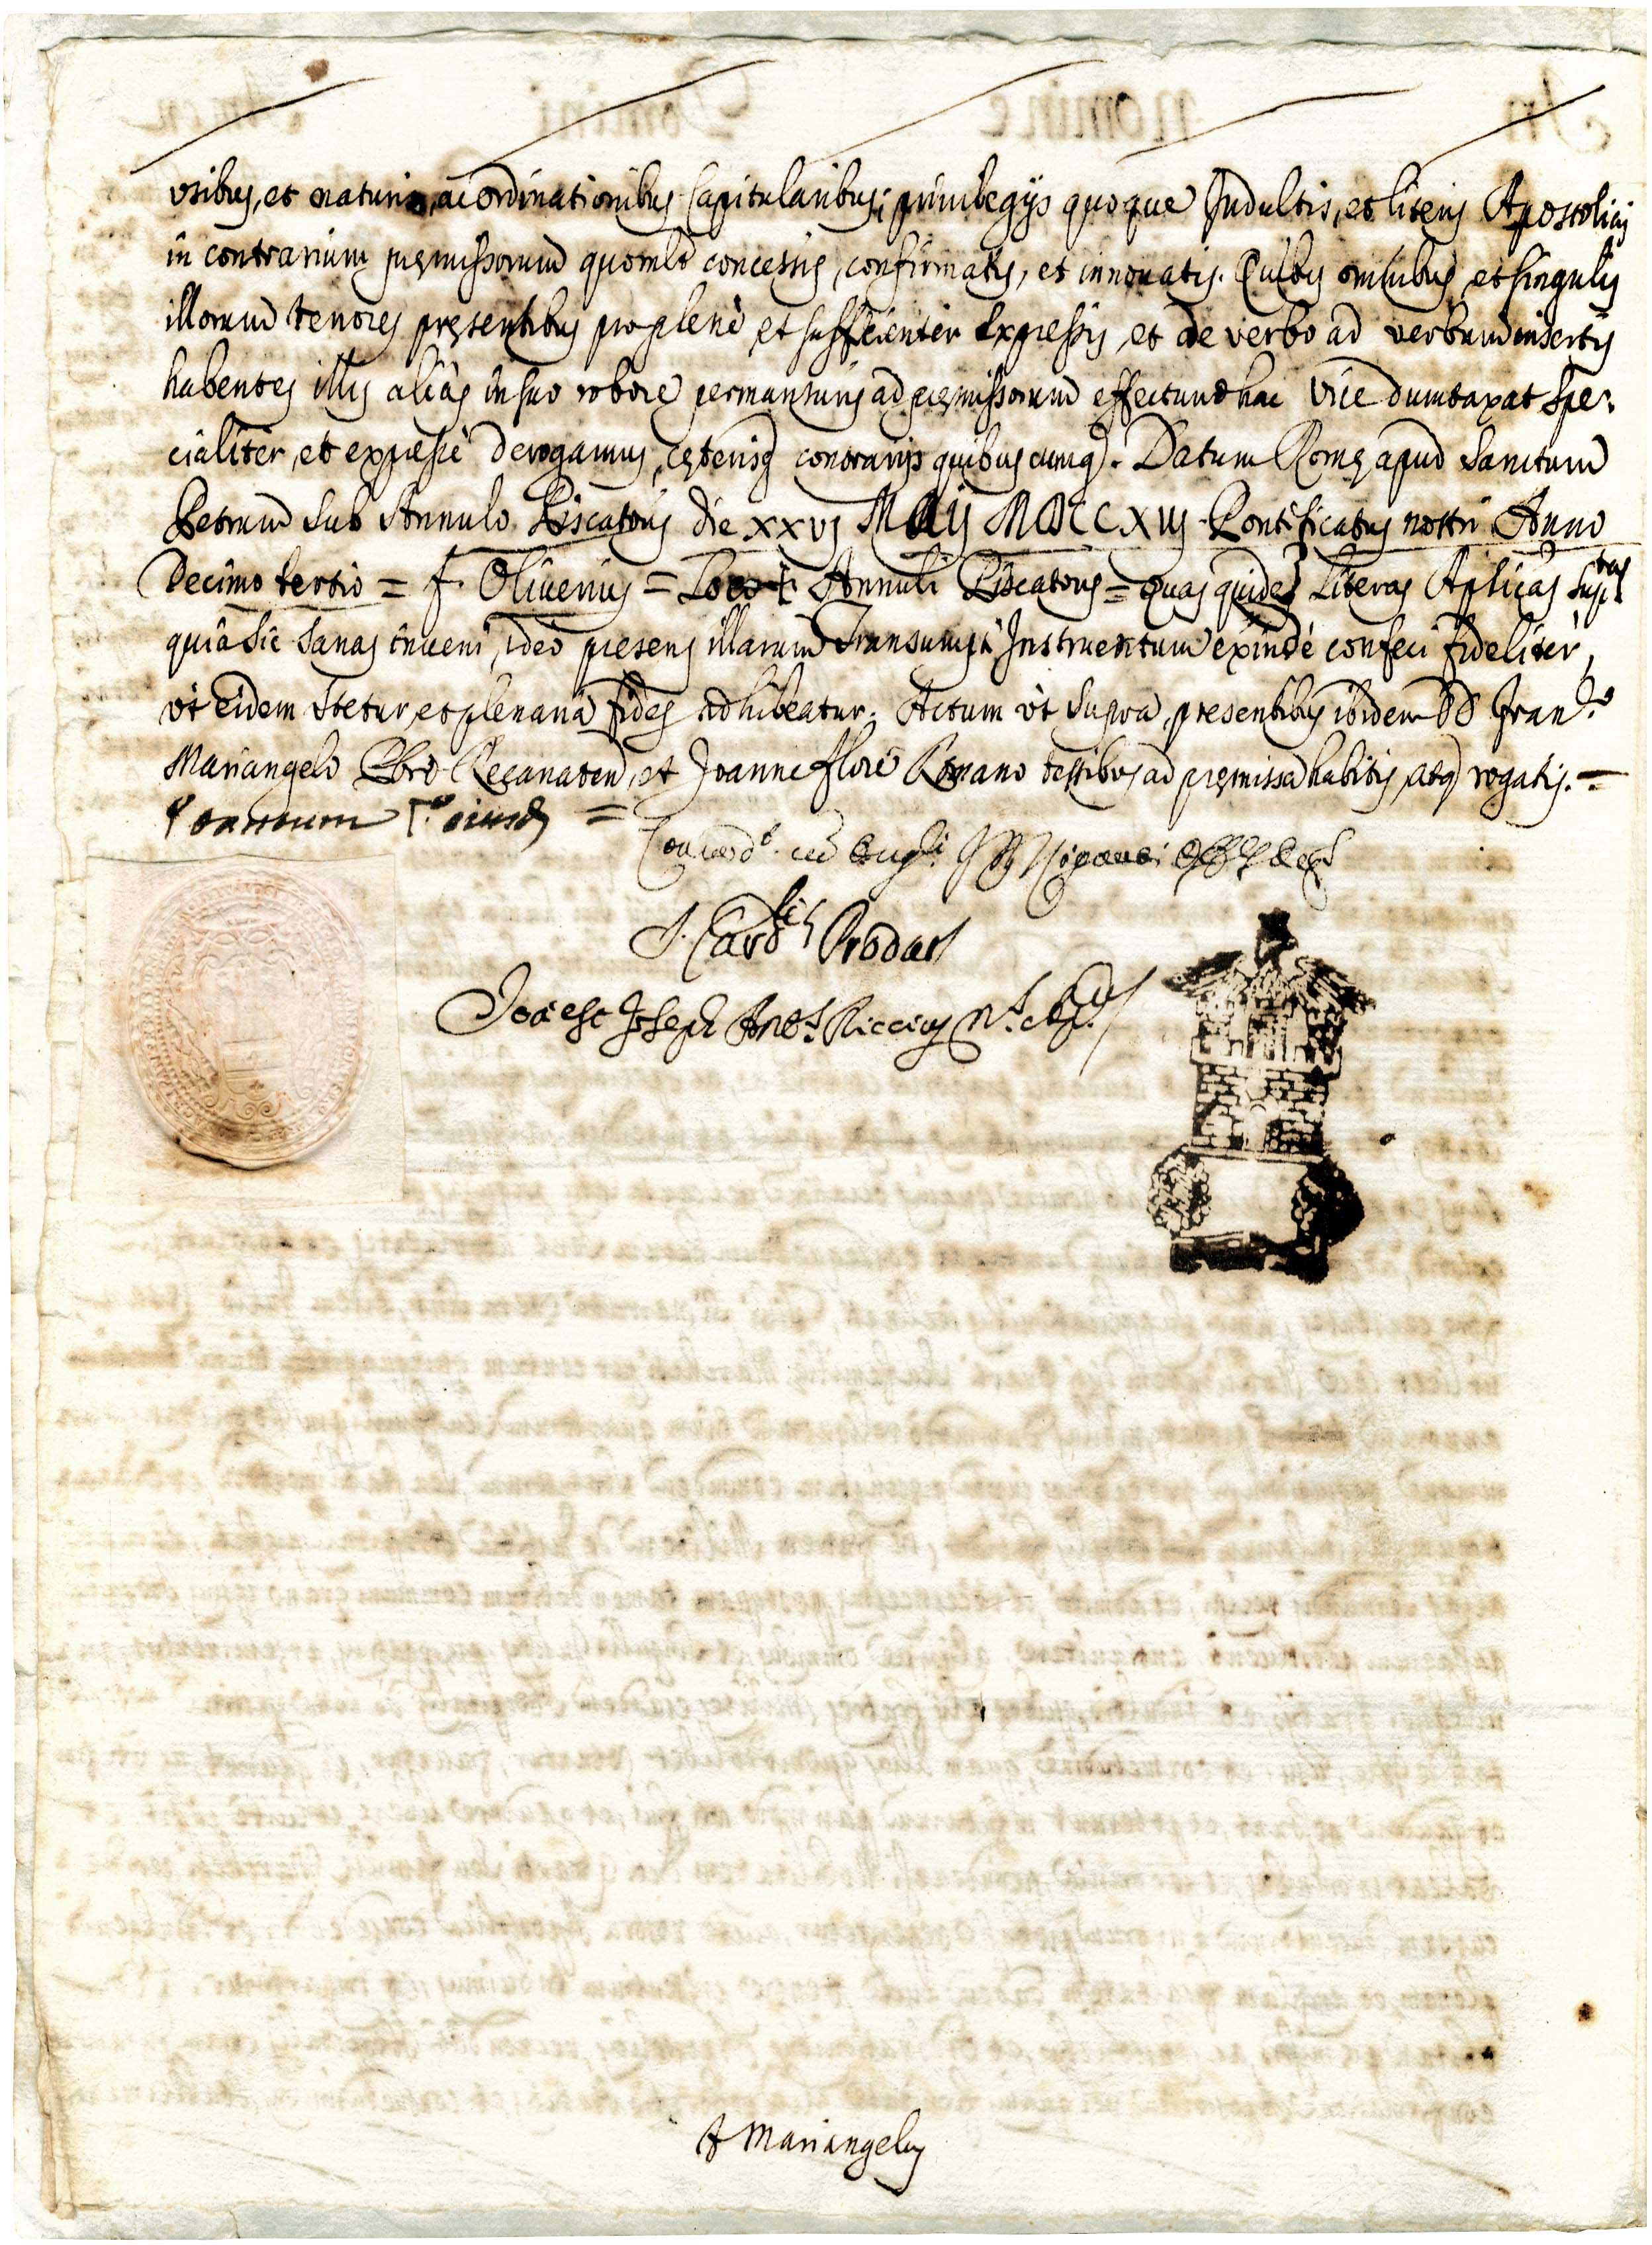 vsibus, et naturis, ac ordinationibus Capitularibus; priuilegijs quoque Indultis, et literis Apostolicis
in contrarium pręmissorum quomlt concessis, confirmatis, et innouatis. Quibus omnibus, et singulis
illorum tenores pręsentibus pro plenè et sufficienter expressis, et de verbo ad verbum insertis
habentes illis aliàs in suo robore permansuris ad pręmissorum effectum hac vice dumtaxat spe:
cialiter, et expressè derogamus, cęterisq contrarijs quibuscumq. Datum Romę apud Sanctum
Petrum sub Annulo Piscatoris die xxvj Maij MDCCXiij Pontificatus nostri Anno
Decimo tertio = f. Oliuerius = Loco + Annuli Piscatoris = quas quidē Literas Aplicas supt̃as
quia sic sanas inueni, ideò presens illarum Transumpti Instrumentum exindè confeci fideliter,
vt eidem stetur, et plenaria fides adhibeatur. Actum vt supra, presentibus ibidem DD Fran.co
Mariangelo Pbro Recanaten, et Joanne flore Romano testibus ad pręmissa habitis, atq rogatis. =
=
Concord.t cū Origli
S. Card.lis Prodat.s
Ita est Joseph Ant.s Riccius N.s Ap.cus
In nomine Domini Amen
F Mariangelus